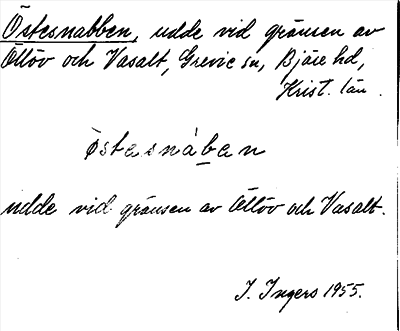 Östesnabben, udde vid gränsen av
Öllöv och Vasalt, Grevie sn, Bjäre hd,
Krist. län.
östesnàben
udde vid gränsen av Öllöv och Vasalt.
I. Ingers 1955.